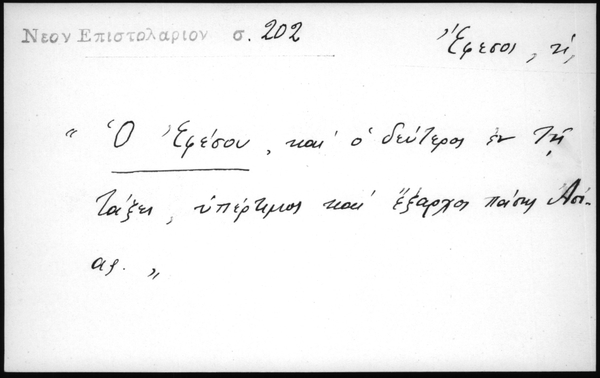 Νεον Επιστολαριον σ. 202
Ἔφεσος, ἡ,
“ Ὁ Ἐφέσου, καὶ ὁ δεύτερος ἐν τῇ
τάξει, ὑπέρτιμος καὶ ἔξαρχος πάσης Ἀσί-
ας. „